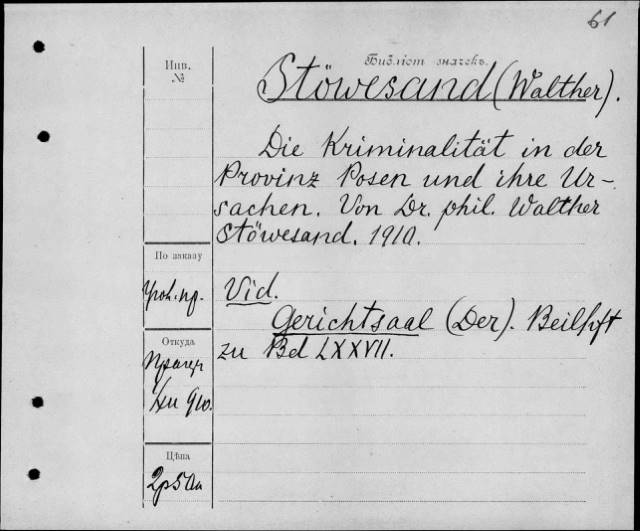 61
Инв.
№
Библіот. значекъ.
Stöwesand (Walther).
Die Kriminalität in der
Provinz Posen und ihre Ur-
sachen. Von Dr. phil. Walther
Stöwesand. 1910.
По заказу
Vid.
Gerichtsaal (Der). Beilhft
zu Bd LXXVII.
Откуда
Цѣна